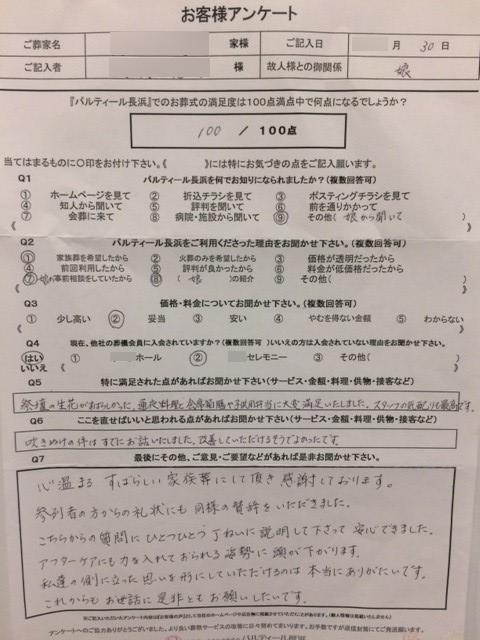 お客様アンケート
ご葬家名 家様 ご記入日 月 30 日
ご記入者 様 故人様との御関係 娘
『パルティール長浜』でのお葬式の満足度は100点満点中で何点になるでしょうか？
100 / 100点
当てはまるものに○印をお付け下さい。《 》には特にお気づきの点をご記入願います。
Q1 パルティール長浜を何でお知りになられましたか？(複数回答可)
① ホームページを見て ② 折込チラシを見て ③ ポスティングチラシを見て
④ 知人から聞いて ⑤ 評判を聞いて ⑥ 前を通りかかって
⑦ 会葬に来て ⑧ 病院・施設から聞いて ⑨ その他( 娘から聞いて )
《 》
Q2 パルティール長浜をご利用くださった理由をお聞かせ下さい。(複数回答可)
① 家族葬を希望したから ② 火葬のみを希望したから ③ 価格が透明だったから
④ 前回利用したから ⑤ 評判が良かったから ⑥ 料金が低価格だったから
⑦ 娘が事前相談をしていたから ⑧ ( 娘 )の紹介 ⑨ その他( )
《 》
Q3 価格・料金についてお聞かせ下さい。(複数回答可)
① 少し高い ② 妥当 ③ 安い ④ やむを得ない金額 ⑤ わからない
《 》
Q4 現在、他社の葬儀会員に入会されていますか？(複数回答可) いいえの方は入会されていない理由をお聞かせ下さい。
はい ① ホール ② セレモニー ③ その他( )
いいえ 《 》
Q5 特に満足された点があればお聞かせ下さい(サービス・金額・料理・供物・接客など)
祭壇の生花がすばらしかった。通夜料理と会席御膳や子供用弁当に大変満足いたしました。スタッフの気配りも最高です。
Q6 ここを直せばいいと思われる点があればお聞かせ下さい(サービス・金額・料理・供物・接客など)
吹きぬけの件はすでにお話いたしました。改善していただけるそうでよかったです。
Q7 最後にその他、ご意見・ご要望などがあれば是非お聞かせ下さい。
心温まる すばらしい家族葬にして頂き 感謝しております。
参列者の方からの礼状にも 同様の賛辞をいただきました。
こちらからの質問にひとつひとつ 丁ねいに説明して下さって 安心できました。
アフターケアにも力を入れておられる姿勢に頭が下がります。
私達の側に立った思いを形にしていただけるのは 本当にありがたいです。
これからもお世話に是非ともお願いしたいです。
アンケートへのご協力ありがとうございました。より一層葬祭サービスの改善に日々努めてまいります。お手数ですが返信封筒にてご発送願います。
パルティール長浜